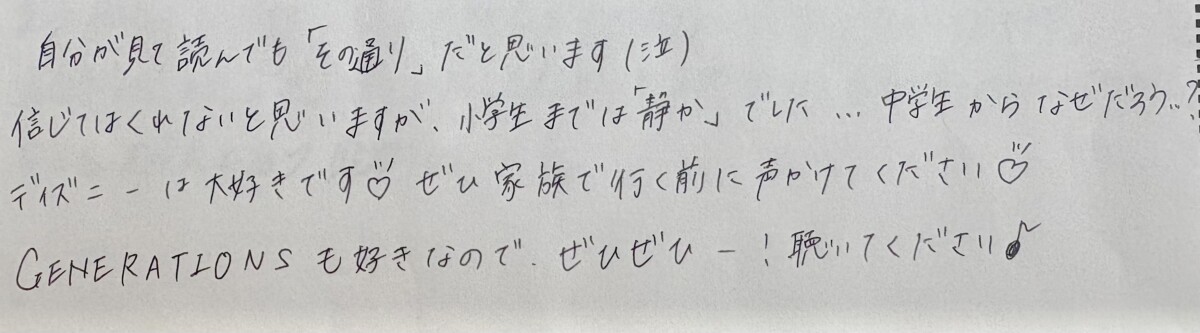 自分が見て読んでも「その通り」だと思います(泣)
信じてはくれないと思いますが、小学生までは「静か」でした…中学生からなぜだろう…?
ディズニーは大好きです♡ ぜひ家族で行く前に声かけてください♡
GENERATIONSも好きなので、ぜひぜひー!聴いてください♪